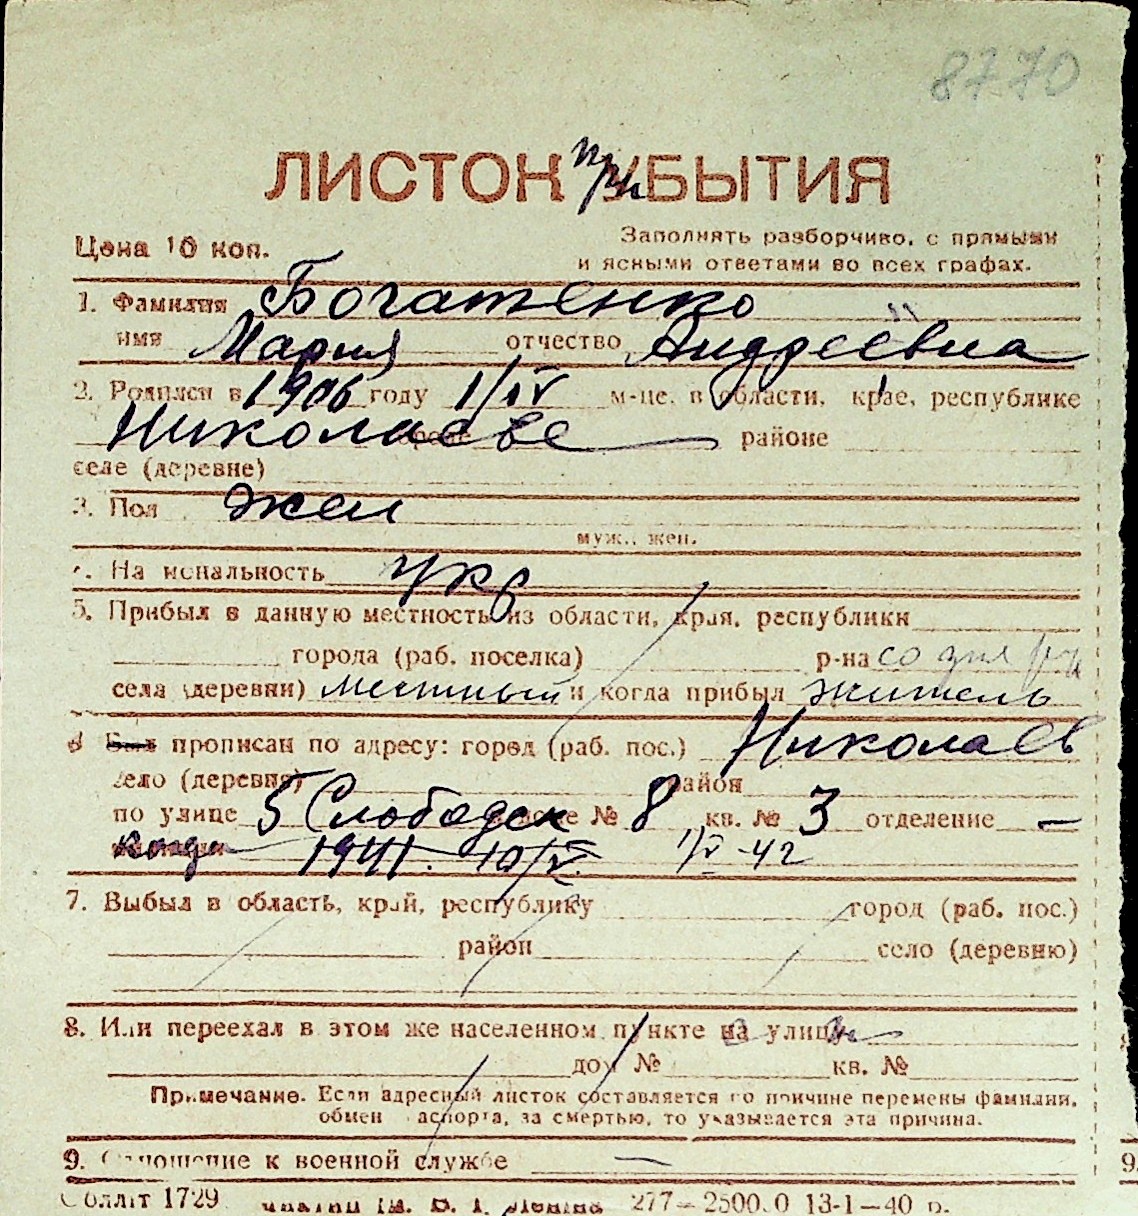 8770
ЛИСТОК УБЫТИЯ
Цена 10 коп.
Заполнять разборчиво, с прямыми
и ясными ответами во всех графах.
1. Фамилия Богатенко
имя Мария отчество Андреевна
2. Родился в 1906 году 1/IV м-це, в области, крае, республике
Николаеве районе
селе (деревне)
3. Пол жен
муж., жен.
На иональность укр
5. Прибыл в данную местность из области, края, республики
города (раб. поселка) р-на со дня
села (деревни) местный и когда прибыл житель
Был прописан по адресу: город (раб. пос.) Николаев
село (деревня) район
по улице 5 Слободск № 8 кв. № 3 отделение —
когда 1941. 10/V. 1/V-42
7. Выбыл в область, край, республику город (раб. пос.)
район село (деревню)
8. Или переехал в этом же населенном пункте на улицу
дом № кв. №
Примечание. Если адресный листок составляется по причине перемены фамилии,
обмен аспорта, за смертью, то указывается эта причина.
9. Отношение к военной службе —
9.
Соллит 1729 277—2500.0 13-1—40 г.